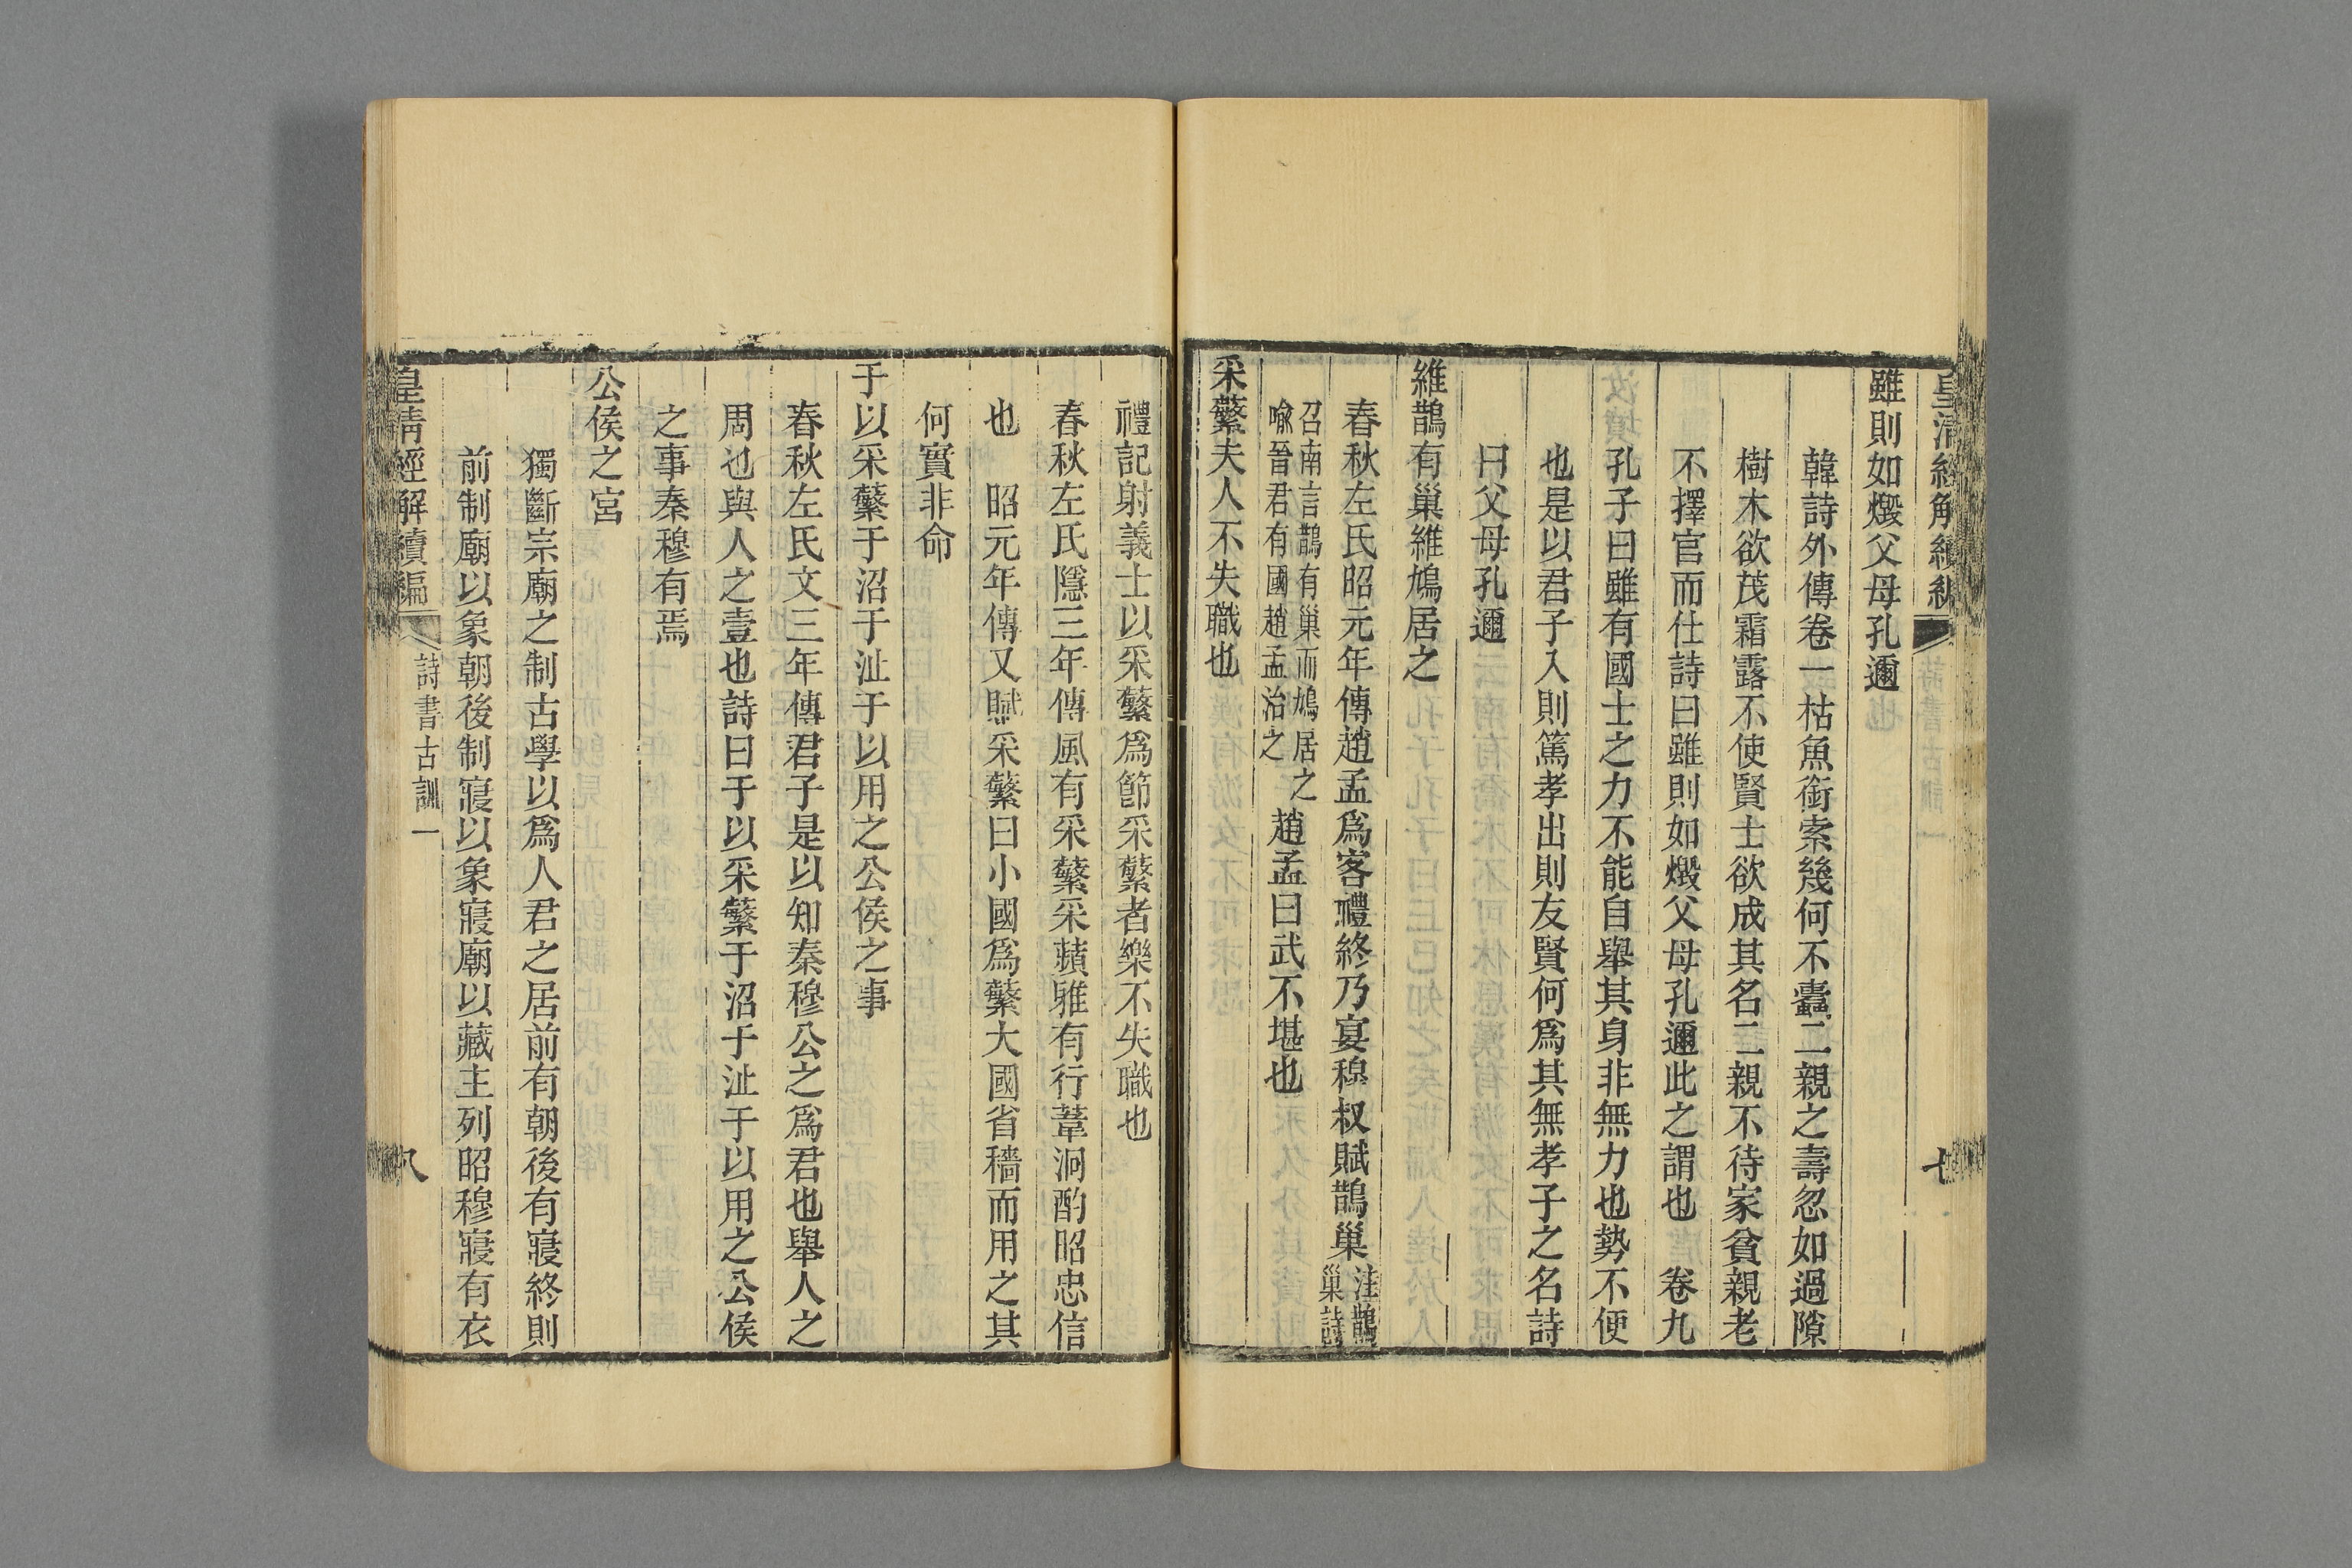 皇清經解續編
七
雖則如燬父母孔邇
韓詩外傳卷一枯魚銜索幾何不蠹二親之壽忽如過隙
樹木欲茂霜露不使賢士欲成其名二親不待家貧親老
不擇官而仕詩曰雖則如燬父母孔邇此之謂也　卷九
孔子曰雖有國士之力不能自舉其身非無力也勢不便
也是以君子入則篤孝出則友賢何爲其無孝子之名詩
曰父母孔邇
維鵲有巢維鳩居之
春秋左氏昭元年傳趙孟爲客禮終乃宴穆叔賦鵲巢注鵲巢詩
召南言鵲有巢而鳩居之喻晉君有國趙孟治之趙孟曰武不堪也
采蘩夫人不失職也
禮記射義士以采蘩爲節采蘩者樂不失職也
春秋左氏隱三年傳風有采蘩采蘋雅有行葦泂酌昭忠信
也　昭元年傳又賦采蘩曰小國爲蘩大國省穡而用之其
何實非命
于以采蘩于沼于沚于以用之公侯之事
春秋左氏文三年傳君子是以知秦穆公之爲君也舉人之
周也與人之壹也詩曰于以采蘩于沼于沚于以用之公侯
之事秦穆有焉
公侯之宮
獨斷宗廟之制古學以爲人君之居前有朝後有寢終則
前制廟以象朝後制寢以象寢廟以藏主列昭穆寢有衣
皇清經解續編
詩書古訓一
八